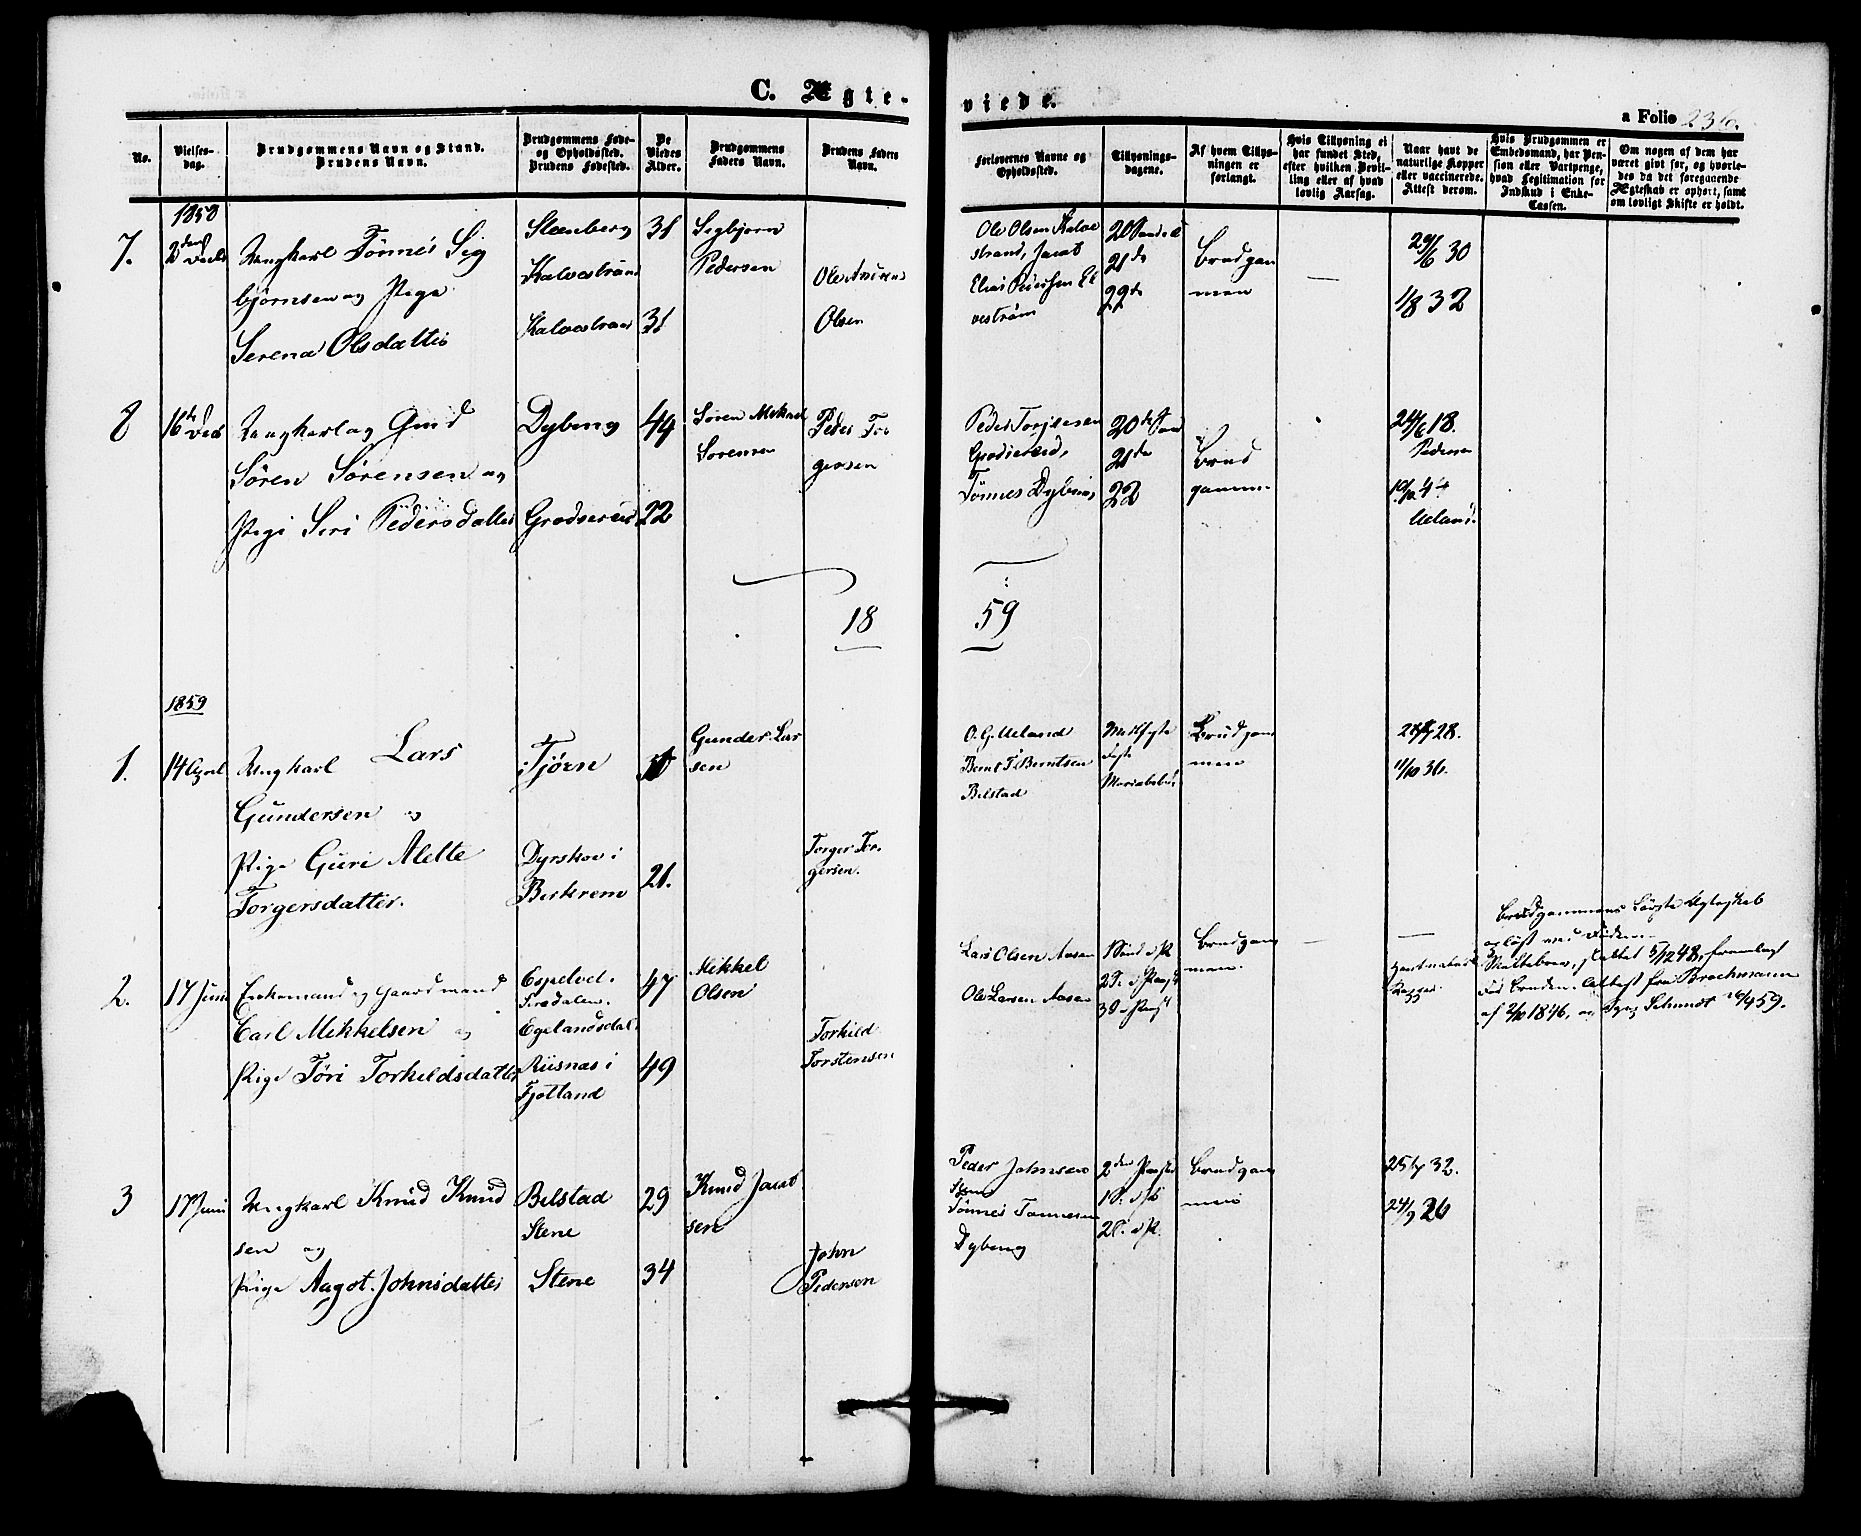 C. Ægte-
viede.
a Folio 236.
No.
Vielses-
dag.
Brudgommens Navn og Stand.
Brudens Navn.
Brudgommens Føde-
og Opholdssted.
Brudens Fødested.
De
Viedes
Alder.
Brudgommens
Faders Navn.
Brudens Faders
Navn.
Forlovernes Navne og
Opholdssted.
Tillysnings-
dagene.
Af hvem Tillys-
ningen er
forlangt.
Hvis Tillysning ei
har fundet Sted,
efter hvilken Bevil-
ling eller af hvad
lovlig Aarsag.
Naar havt de
naturlige Kopper
eller vaccinerede.
Attest derom.
Hvis Brudgommen er
Embedsmand, har Pen-
sion eller Vartpenge,
hvad Legitimation for
Indskud i Enke-
Cassen.
Om nogen af dem har
været gift før, og hvorle-
des da det foregaaende
Ægteskab er ophørt, samt
om lovligt Skifte er holdt.
1858
7.
Ungkarl Tønnes Sig
bjørnsen og Pige
Serena Olsdatter
Steenberg
Kalvestrand
Kalvestrand
31
31
Sigbjørn
Pedersen
Ole
Olsen
Ole Olsen Kalve
strand, Jacob
20
21de
22de
Brudgom
men
29/6 30
1/8 32
8
16de Decb
Ungkarl og Gmd
Søren Sørensen og
Pige Siri Pedersdatter
Dybing
44
22
Søren Mikael
Sørensen
Peder Tor
gersen
Peder Torgersen
Tønnes Dybing
20de Sønd
21de
22
Brud
gomm.
24/6 18.
Pedersen
Ueland.
18
59
1859
1.
14 April
Ungkarl Lars
Gundersen og
Pige Guri Alette
Torgersdatter.
Tjørn
Dyrskov i
Birkrem
21.
Gunder Lar
sen
Torger Tor-
gersen.
O. G. Ueland
Bernt T. Berntsen
Bilstad
Midtfaste
Feste
Mariabebu.
Brudgom
men
28.
11/10 36.
2.
17 Juni
Enkemand og Gaardmand
Carl Mikkelsen og
Pige Töri Torkildsdatter
Espetvet.
Siredalen.
Egelandsdal.
Risnæs i
Fjotland
47
49
Mikkel
Olsen
Torkild
Torstensen
Lars Olsen Aasen
Ole Larsen Aasen
Brudgom
men.
havt naturl
Kopper.
Brudgommens første Ægteskab
opløst ved Døden.
Skiftebrev, sluttet 5/12 48, fremlagt
For Bruden Attest fra Brochmann
af 2/10 1846, og Sgpr Schmidt 26/4 59.
3
17 Juni
Ungkarl Knud Knud
sen og
Pige Aagot Johnsdatter
Bilstad
Stene
Stene
29
34
Knud Jacob
sen
John
Pedersen
Peder Johnsen
Stene
Tønnes Tønnesen
Dybing
Brudgom
men
25/7 32.
24/9 26